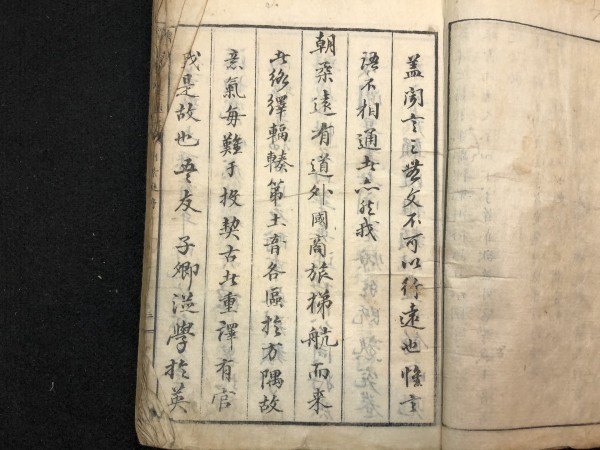 盖聞言之無文不可以行遠也惟言
語不相通者亦然我
朝柔遠有道外國商旅梯航而來
者絡繹輻輳第土音各區於方隅故
意氣每難于投契古者重譯有官
職是故也吾友 子卿從學於英